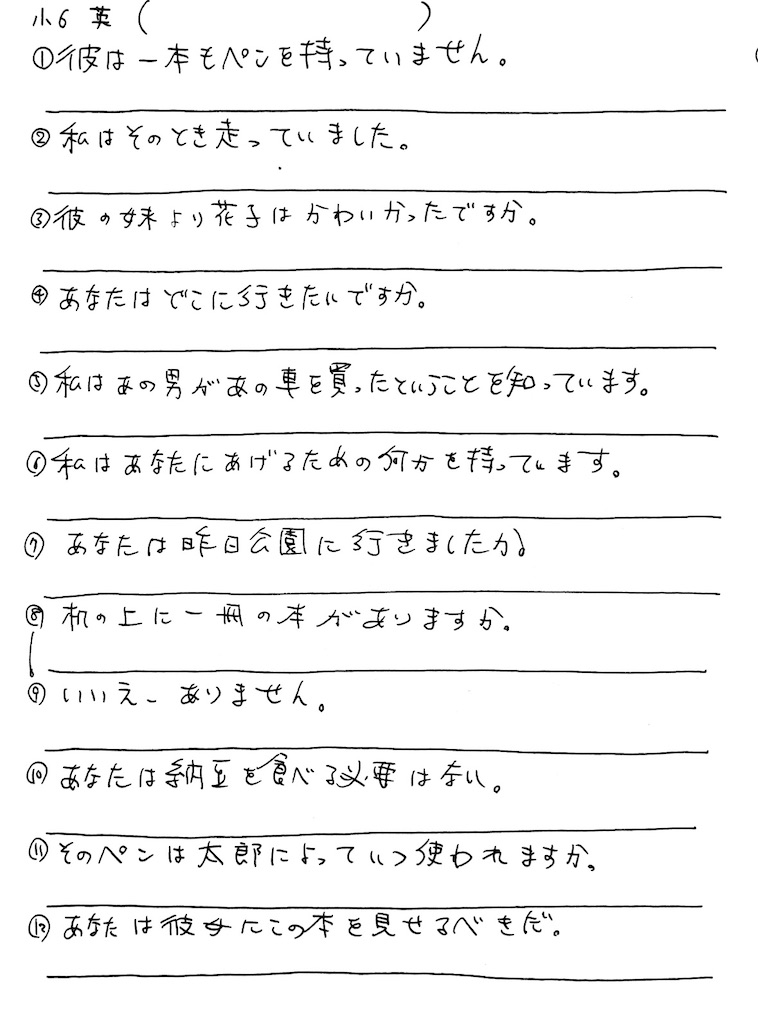 小6 英 ( )
①彼は一本もペンを持っていません。
②私はそのとき走っていました。
③彼の妹より花子はかわいかったですか。
④あなたはどこに行きたいですか。
⑤私はあの男があの車を買ったということを知っています。
⑥私はあなたにあげるための何かを持っています。
⑦あなたは昨日公園に行きましたか。
⑧机の上に一冊の本がありますか。
⑨いいえ、ありません。
⑩あなたは納豆を食べる必要はない。
⑪そのペンは太郎によっていつ使われますか。
⑫あなたは彼女にこの本を見せるべきだ。